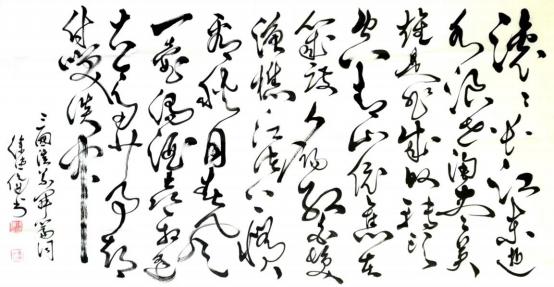 滚滚长江东逝
水浪花淘尽英
雄是非成败转头
空青山依旧在
几度夕阳红白发
渔樵江渚上惯
看秋月春风
一壶浊酒喜相逢
古今多少事都
付笑谈中
三国演义开篇词
书